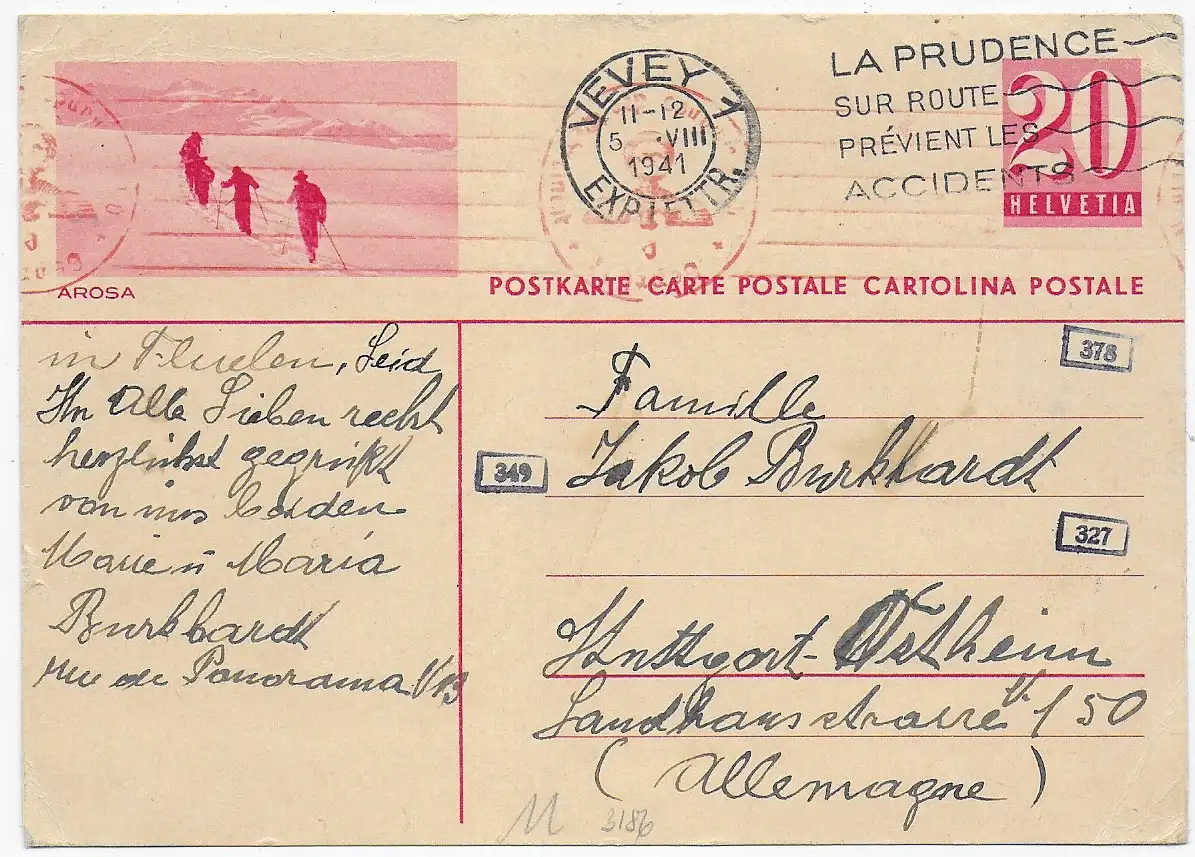 VEVEY 1
11-12
5. VIII
1941
EXP. LETTR.
LA PRUDENCE
SUR ROUTE
PRÉVIENT LES
ACCIDENTS
20
HELVETIA
AROSA
POSTKARTE CARTE POSTALE CARTOLINA POSTALE
in Fluelen, Seid
Ihr Alle Lieben recht
herzlichst gegrüßt
von uns beiden
Marie u Maria
Burkhardt
rue de Panorama 13
378
Famille
349
Jakob Burkhardt
327
Stuttgart-Ostheim
Landhausstrasse 150
(Allemagne)
3186